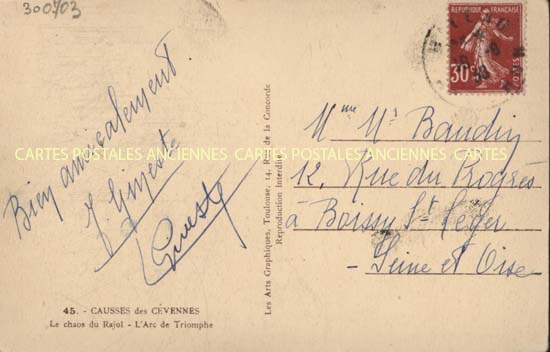 300703
REPUBLIQUE FRANÇAISE
30c
POSTES
Bien amicalement
J Gineste
Gineste
Mme Ms Baudin
12, Rue du Progrès
à Boissy St Léger
- Seine et Oise
CARTES POSTALES ANCIENNES CARTES POSTALES ANCIENNES CARTES POSTALES ANCIENNES
Les Arts Graphiques, Toulouse, 14, Rue de la Concorde
Reproduction interdite
45. - CAUSSES des CÉVENNES
Le chaos du Rajol - L'Arc de Triomphe